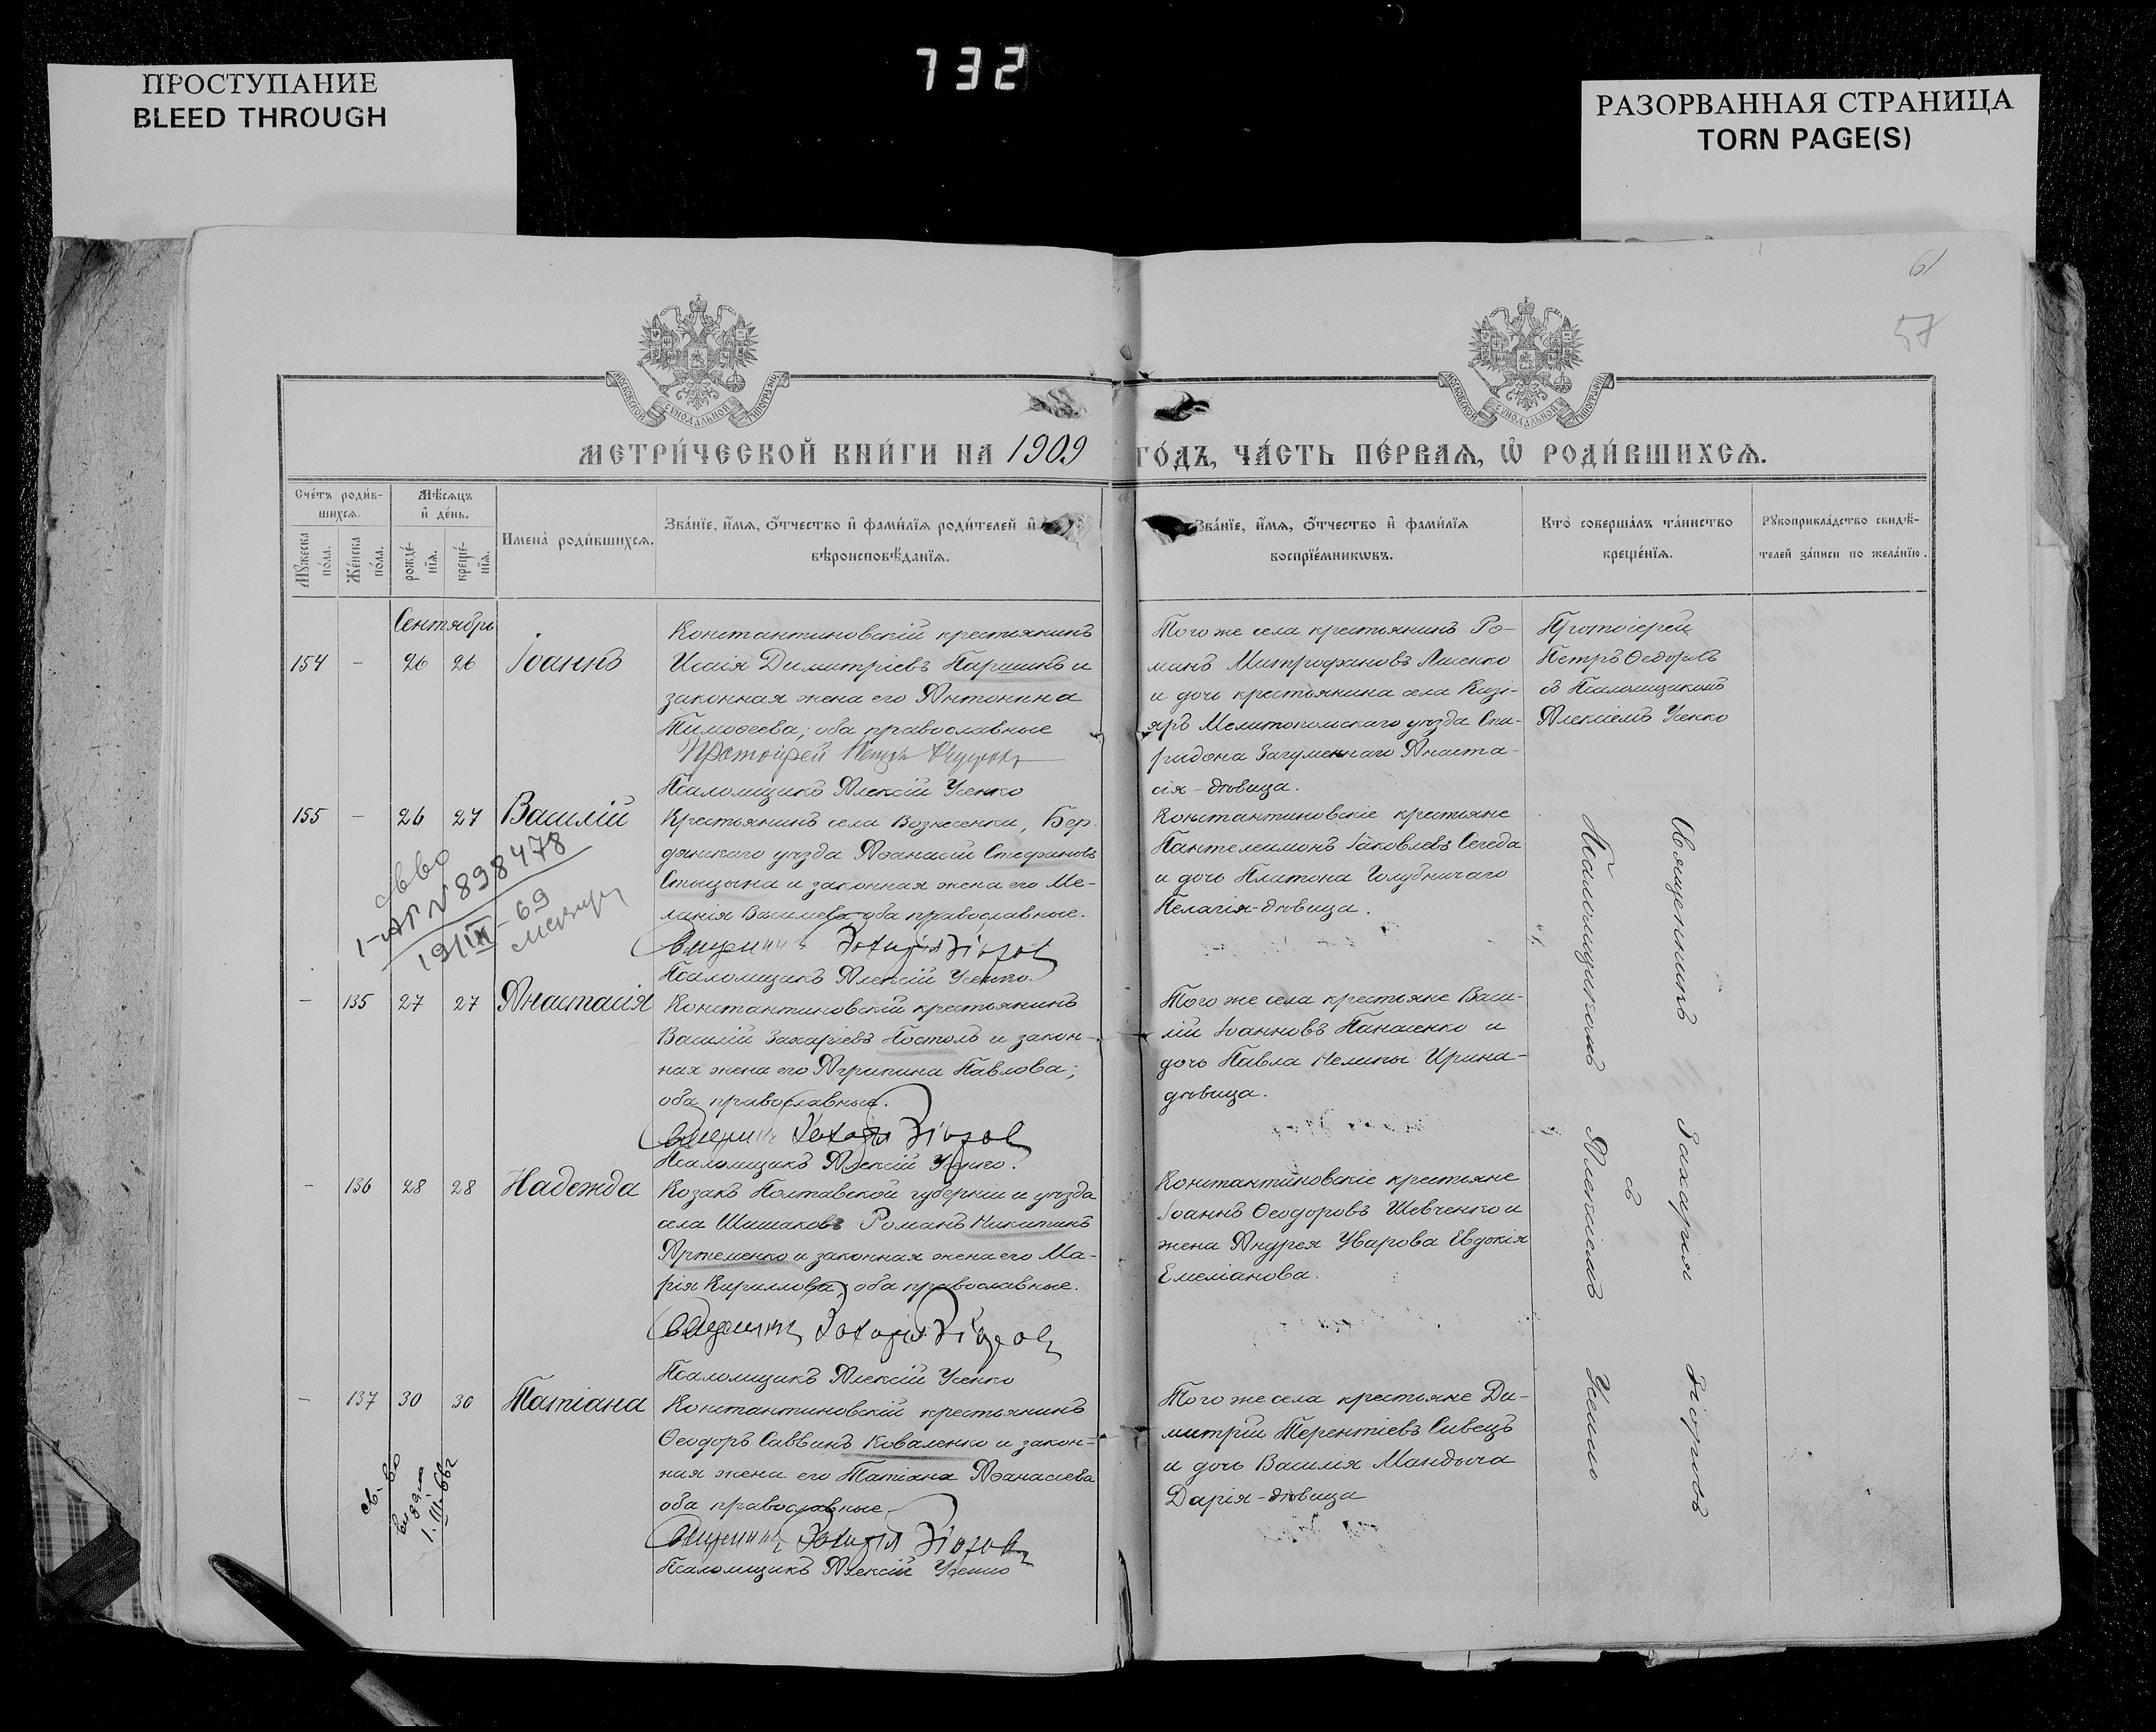 732
ПРОСТУПАНИЕ
BLEED THROUGH
РАЗОРВАННАЯ СТРАНИЦА
TORN PAGE(S)
61
57
МОСКОВСКОЙ СУНОДАЛЬНОЙ ТИПОГРАФІИ
МОСКОВСКОЙ СУНОДАЛЬНОЙ ТИПОГРАФІИ
МЕТРИ́ЧЕСКОЙ КНИ́ГИ НА 1909 ГО́ДЪ, ЧА́СТЬ ПЕ́РВАѦ, Ѡ҆ РОДИ́ВШИХСѦ.
Сче́тъ роди́в-
шихсѧ.
Мꙋ́жеска по́ла.
Же́нска по́ла.
Мѣ́сѧцъ
и҆ де́нь.
рожде́-
нїѧ.
креще́-
нїѧ.
Имена̀ роди́вшихсѧ.
Зва́нїе, и҆́мѧ, ѻ҆́тчество и҆ фами́лїѧ роди́телей и҆
вѣроисповѣ́данїѧ.
Зва́нїе, и҆́мѧ, ѻ҆́тчество и҆ фами́лїѧ
воспрїе́мникѡвъ.
Кто̀ соверша́лъ та́инство
креще́нїѧ.
Рꙋкоприкла́дство свидѣ́-
телей за́писи по жела́нїю.
Сентябрь
154 - 26 26 Іоаннъ
Константиновскій крестьянинъ
Исаія Димитріевъ Паршинъ и
законная жена его Антонина
Тимоѳеева; оба православные
Протоіерей Петръ
Псаломщикъ Алексій Усенко
Того же села крестьянинъ Ро-
манъ Митрофановъ Лисенко
и дочь крестьянина села Кизі-
яръ Мелитопольскаго уѣзда Спи-
ридона Загуменнаго Анаста-
сія - дѣвица.
Протоіерей
Петръ
съ Псаломщикомъ
Алексіемъ Усенко
155 - 26 27 Василій
Крестьянинъ села Вознесенки, Бер-
дянскаго уѣзда Аѳанасій Стефановъ
Спицына и законная жена его Ме-
ланія Васильева, оба православные.
Священникъ Захарія Зіоровъ
Псаломщикъ Алексій Усенко.
Константиновскіе крестьяне
Пантелеимонъ Іаковлевъ Сегеда
и дочь Платона Голубничаго
Пелагія-дѣвица.
898478
19/IX-69
- 135 27 27 Анастасія
Константиновскій крестьянинъ
Василій Захаріевъ Костоль и закон-
ная жена его Агрипина Павлова;
оба православные.
Священникъ Захарія Зіоровъ
Псаломщикъ Алексій Усенко.
Того же села крестьяне Васи-
лій Іоанновъ Панасенко и
дочь Павла Нелипы Ирина-
дѣвица.
- 136 28 28 Надежда
Козакъ Полтавской губерніи и уѣзда
села Шишаковъ Романъ Никитинъ
Артеменко и законная жена его Ма-
рія Кириллова, оба православные.
Священникъ Захарія Зіоровъ
Псаломщикъ Алексій Усенко
Константиновскіе крестьяне
Іоаннъ Ѳеодоровъ Шевченко и
жена Андрея Уварова Евдокія
Емеліанова.
- 137 30 30 Татіана
Константиновскій крестьянинъ
Ѳеодоръ Саввинъ Коваленко и закон-
ная жена его Татіана Аѳанасіева
оба православные.
Священникъ Захарія Зіоровъ
Псаломщикъ Алексій Усенко
Того же села крестьяне Ди-
митрій Терентіевъ Сивецъ
и дочь Василія Мандыча
Дарія-дѣвица
св-во
выдано
1.III.66г
Священникъ Захарія Зіоровъ
съ
Псаломщикомъ Алексіемъ Усенко